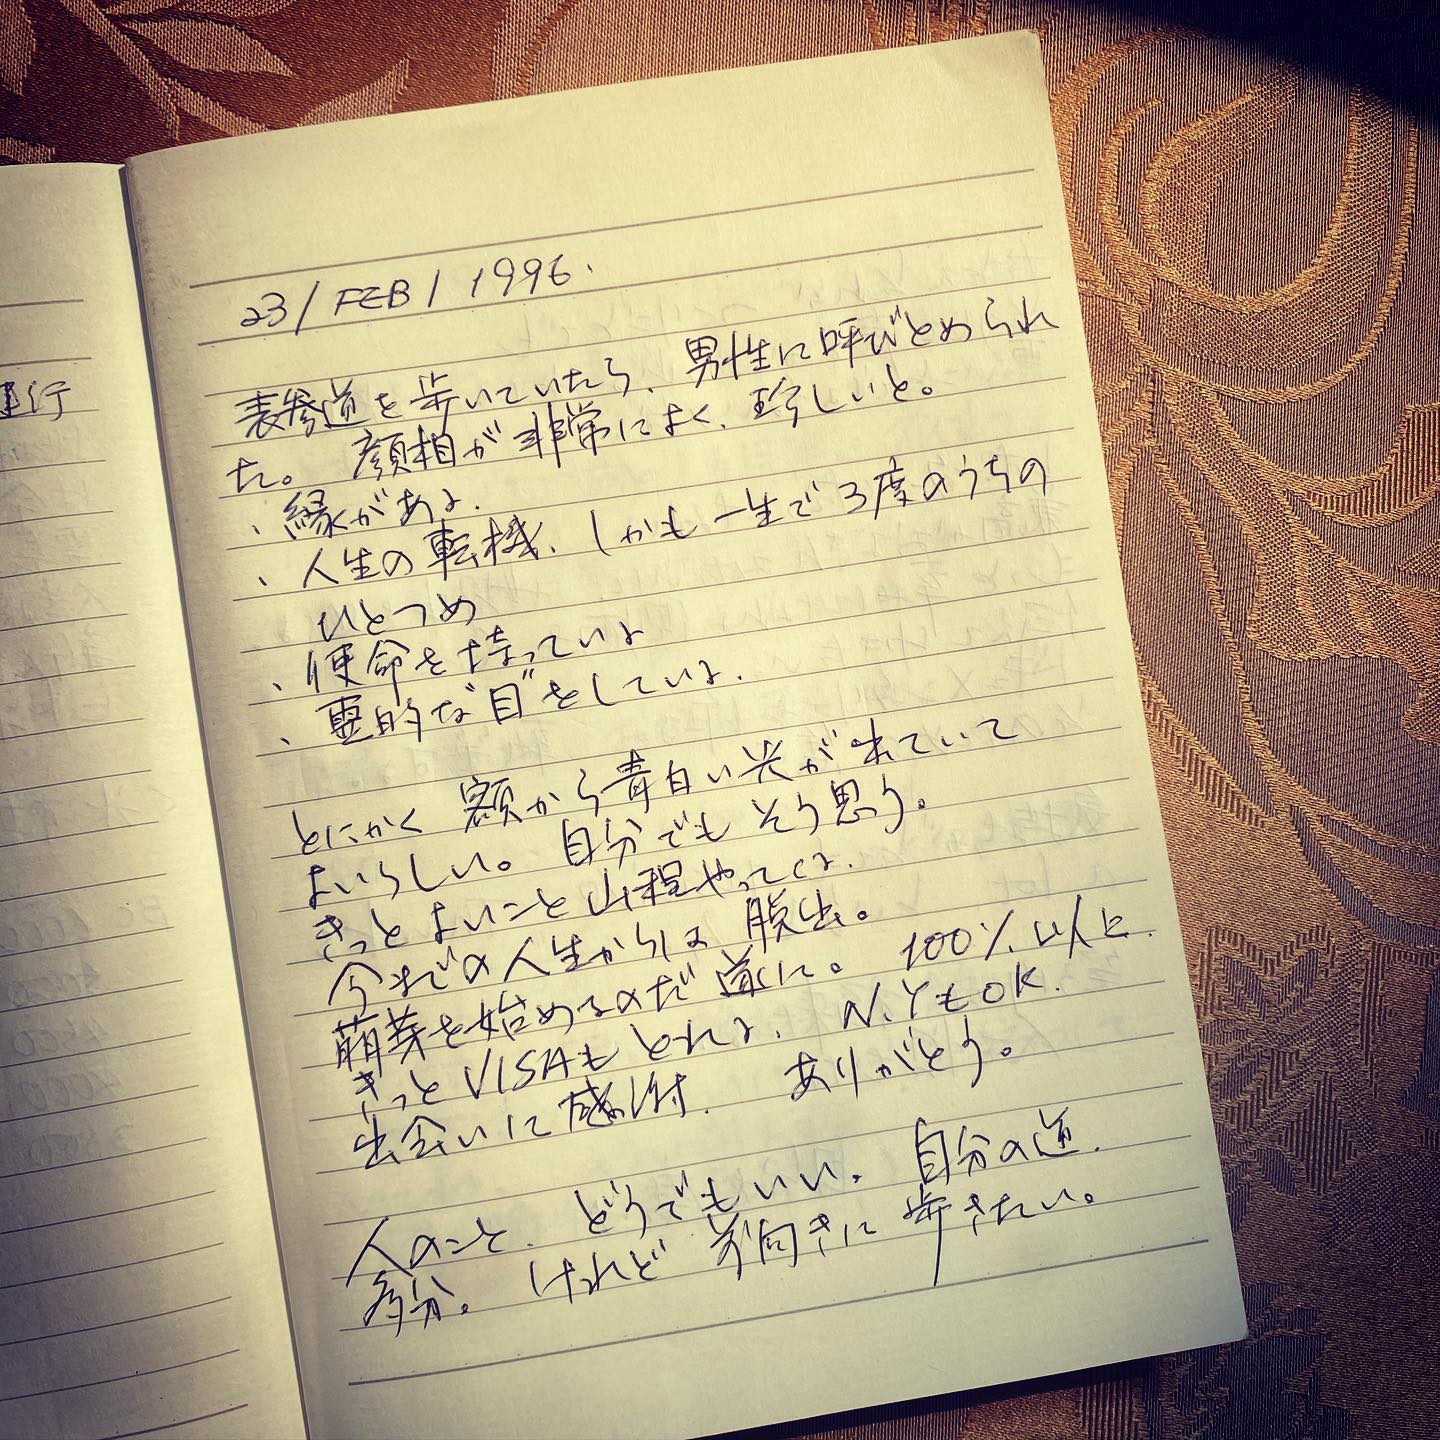 23/FEB/1996.
表参道を歩いていたら、男性に呼びとめられ
た。顔相が非常によく、珍しいと。
、縁がある。
、人生の転機、しかも一生で3度のうちの
ひとつめ
、使命を持っている
、霊的な"目"をしている。
とにかく額から青白い光が出ていて
よいらしい。自分でもそう思う。
きっとよいこと山程やってくる。
今までの人生からは脱出。
萌芽を始めるのだ 道に。100%以上。
きっとVISAもとれる。N.YもOK.
出会いに感謝。ありがとう。
人のこと、どうでもいい。自分の道。
多分。けれど前向きに歩きたい。
行